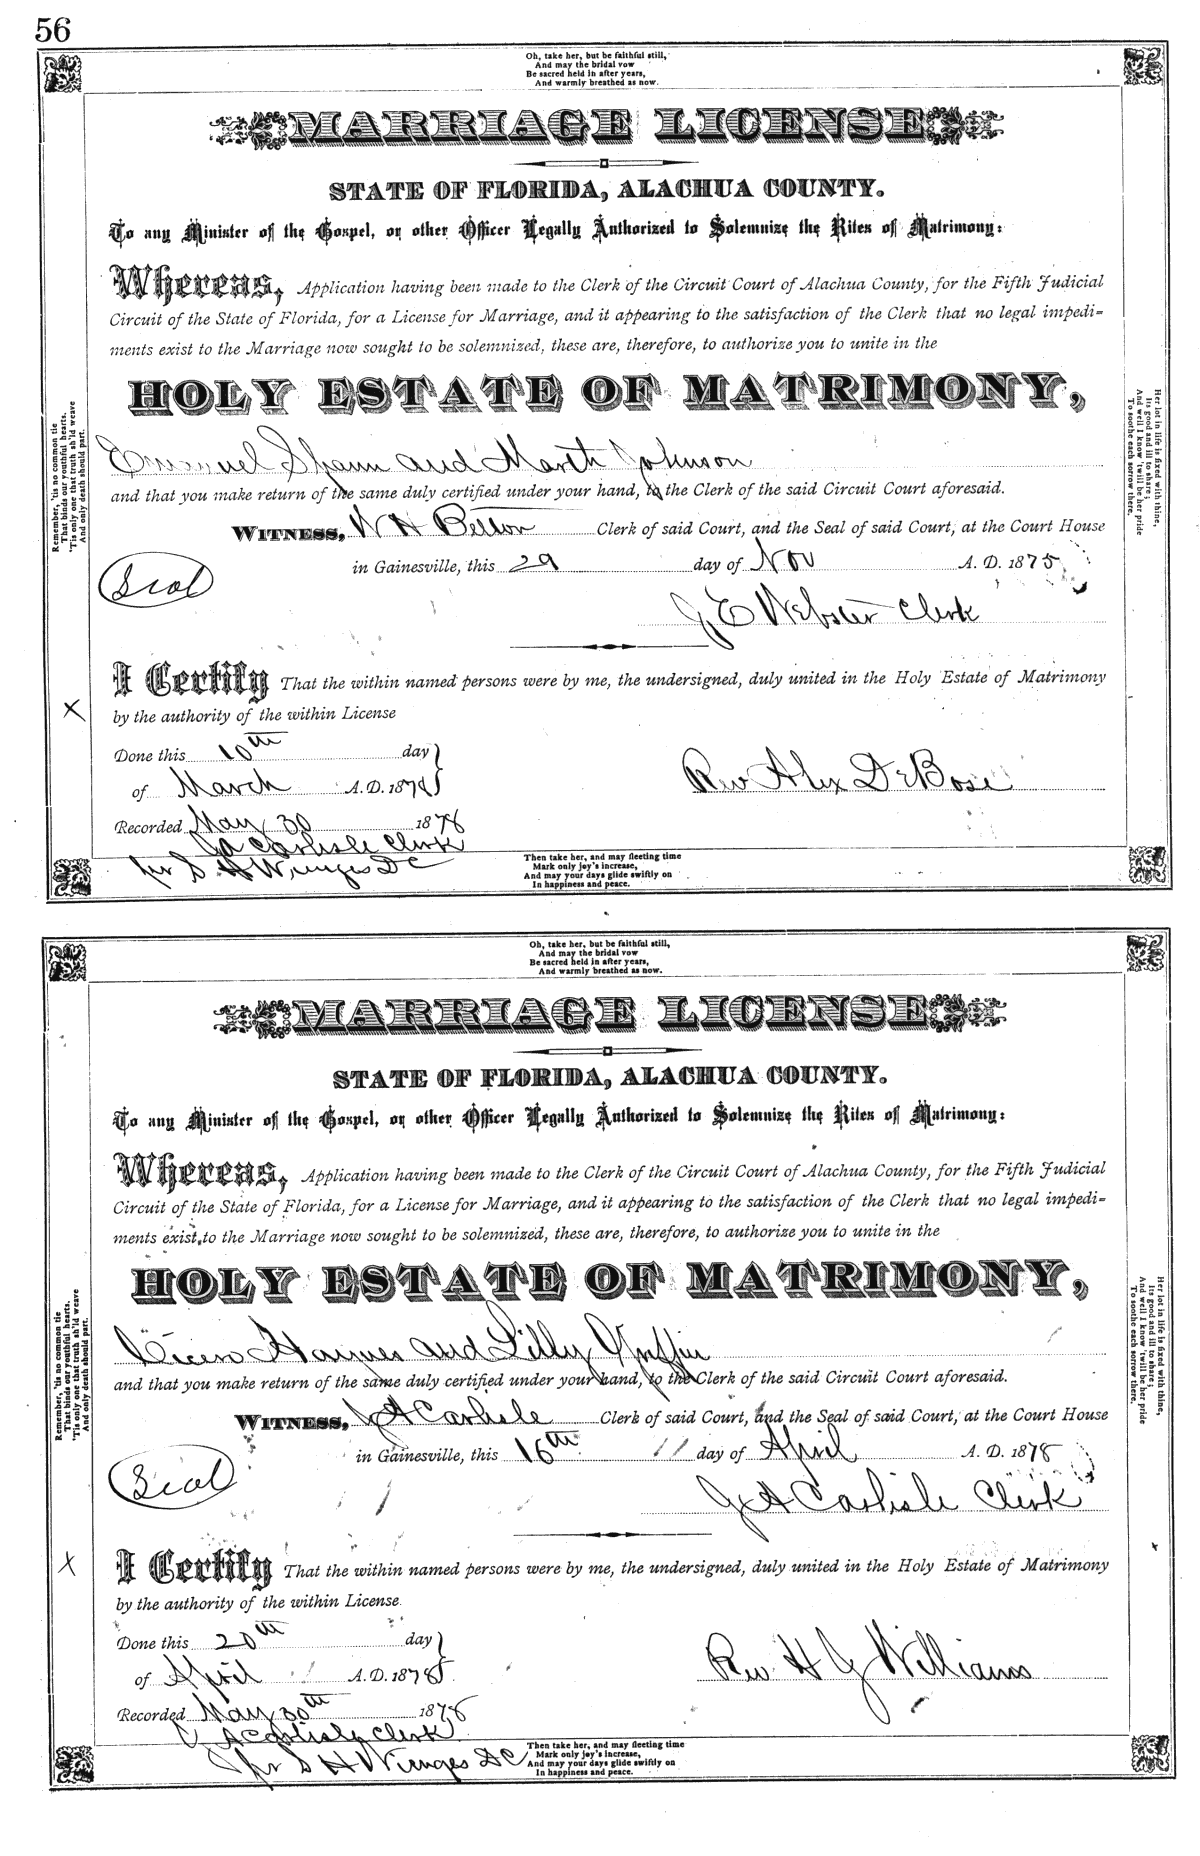 56
Oh, take her, but be faithful still,
And may the bridal vow
Be sacred held in after years,
And warmly breathed as now.
MARRIAGE LICENSE
STATE OF FLORIDA, ALACHUA COUNTY.
To any Minister of the Gospel, or other Officer Legally Authorized to Solemnize the Rites of Matrimony:
Whereas, Application having been made to the Clerk of the Circuit Court of Alachua County, for the Fifth Judicial
Circuit of the State of Florida, for a License for Marriage, and it appearing to the satisfaction of the Clerk that no legal impedi=
ments exist to the Marriage now sought to be solemnized, these are, therefore, to authorize you to unite in the
HOLY ESTATE OF MATRIMONY,
Emanuel Spann and Marth Johnson
and that you make return of the same duly certified under your hand, to the Clerk of the said Circuit Court aforesaid.
WITNESS, W H Belton Clerk of said Court, and the Seal of said Court, at the Court House
in Gainesville, this 29 day of Nov A. D. 1875
Seal
J E Webster Clerk
I Certify That the within named persons were by me, the undersigned, duly united in the Holy Estate of Matrimony
by the authority of the within License
Done this 10th day
of March A. D. 1878
Rev Alex DeBose
Recorded May 30 1878
JA Carlisle Clerk
pr S H Wienges DC
Remember, 'tis no common tie
That binds our youthful hearts.
'Tis only one that truth sh'ld weave
And only death should part.
Her lot in life is fixed with thine,
Its good and ill to share;
And well I know 'twill be her pride
To soothe each sorrow there.
Then take her, and may fleeting time
Mark only joy's increase,
And may your days glide swiftly on
In happiness and peace.
Oh, take her, but be faithful still,
And may the bridal vow
Be sacred held in after years,
And warmly breathed as now.
MARRIAGE LICENSE
STATE OF FLORIDA, ALACHUA COUNTY.
To any Minister of the Gospel, or other Officer Legally Authorized to Solemnize the Rites of Matrimony:
Whereas, Application having been made to the Clerk of the Circuit Court of Alachua County, for the Fifth Judicial
Circuit of the State of Florida, for a License for Marriage, and it appearing to the satisfaction of the Clerk that no legal impedi=
ments exist to the Marriage now sought to be solemnized, these are, therefore, to authorize you to unite in the
HOLY ESTATE OF MATRIMONY,
Cicero Haynes and Lilly Griffin
and that you make return of the same duly certified under your hand, to the Clerk of the said Circuit Court aforesaid.
WITNESS, JA Carlisle Clerk of said Court, and the Seal of said Court, at the Court House
in Gainesville, this 16th day of April A. D. 1878
Seal
JA Carlisle Clerk
I Certify That the within named persons were by me, the undersigned, duly united in the Holy Estate of Matrimony
by the authority of the within License.
Done this 20th day
of April A. D. 1878
Rev H J Williams
Recorded May 30th 1878
J A Carlisle Clerk
pr S H Wienges DC
Remember, 'tis no common tie
That binds our youthful hearts.
'Tis only one that truth sh'ld weave
And only death should part.
Her lot in life is fixed with thine,
Its good and ill to share;
And well I know 'twill be her pride
To soothe each sorrow there.
Then take her, and may fleeting time
Mark only joy's increase,
And may your days glide swiftly on
In happiness and peace.